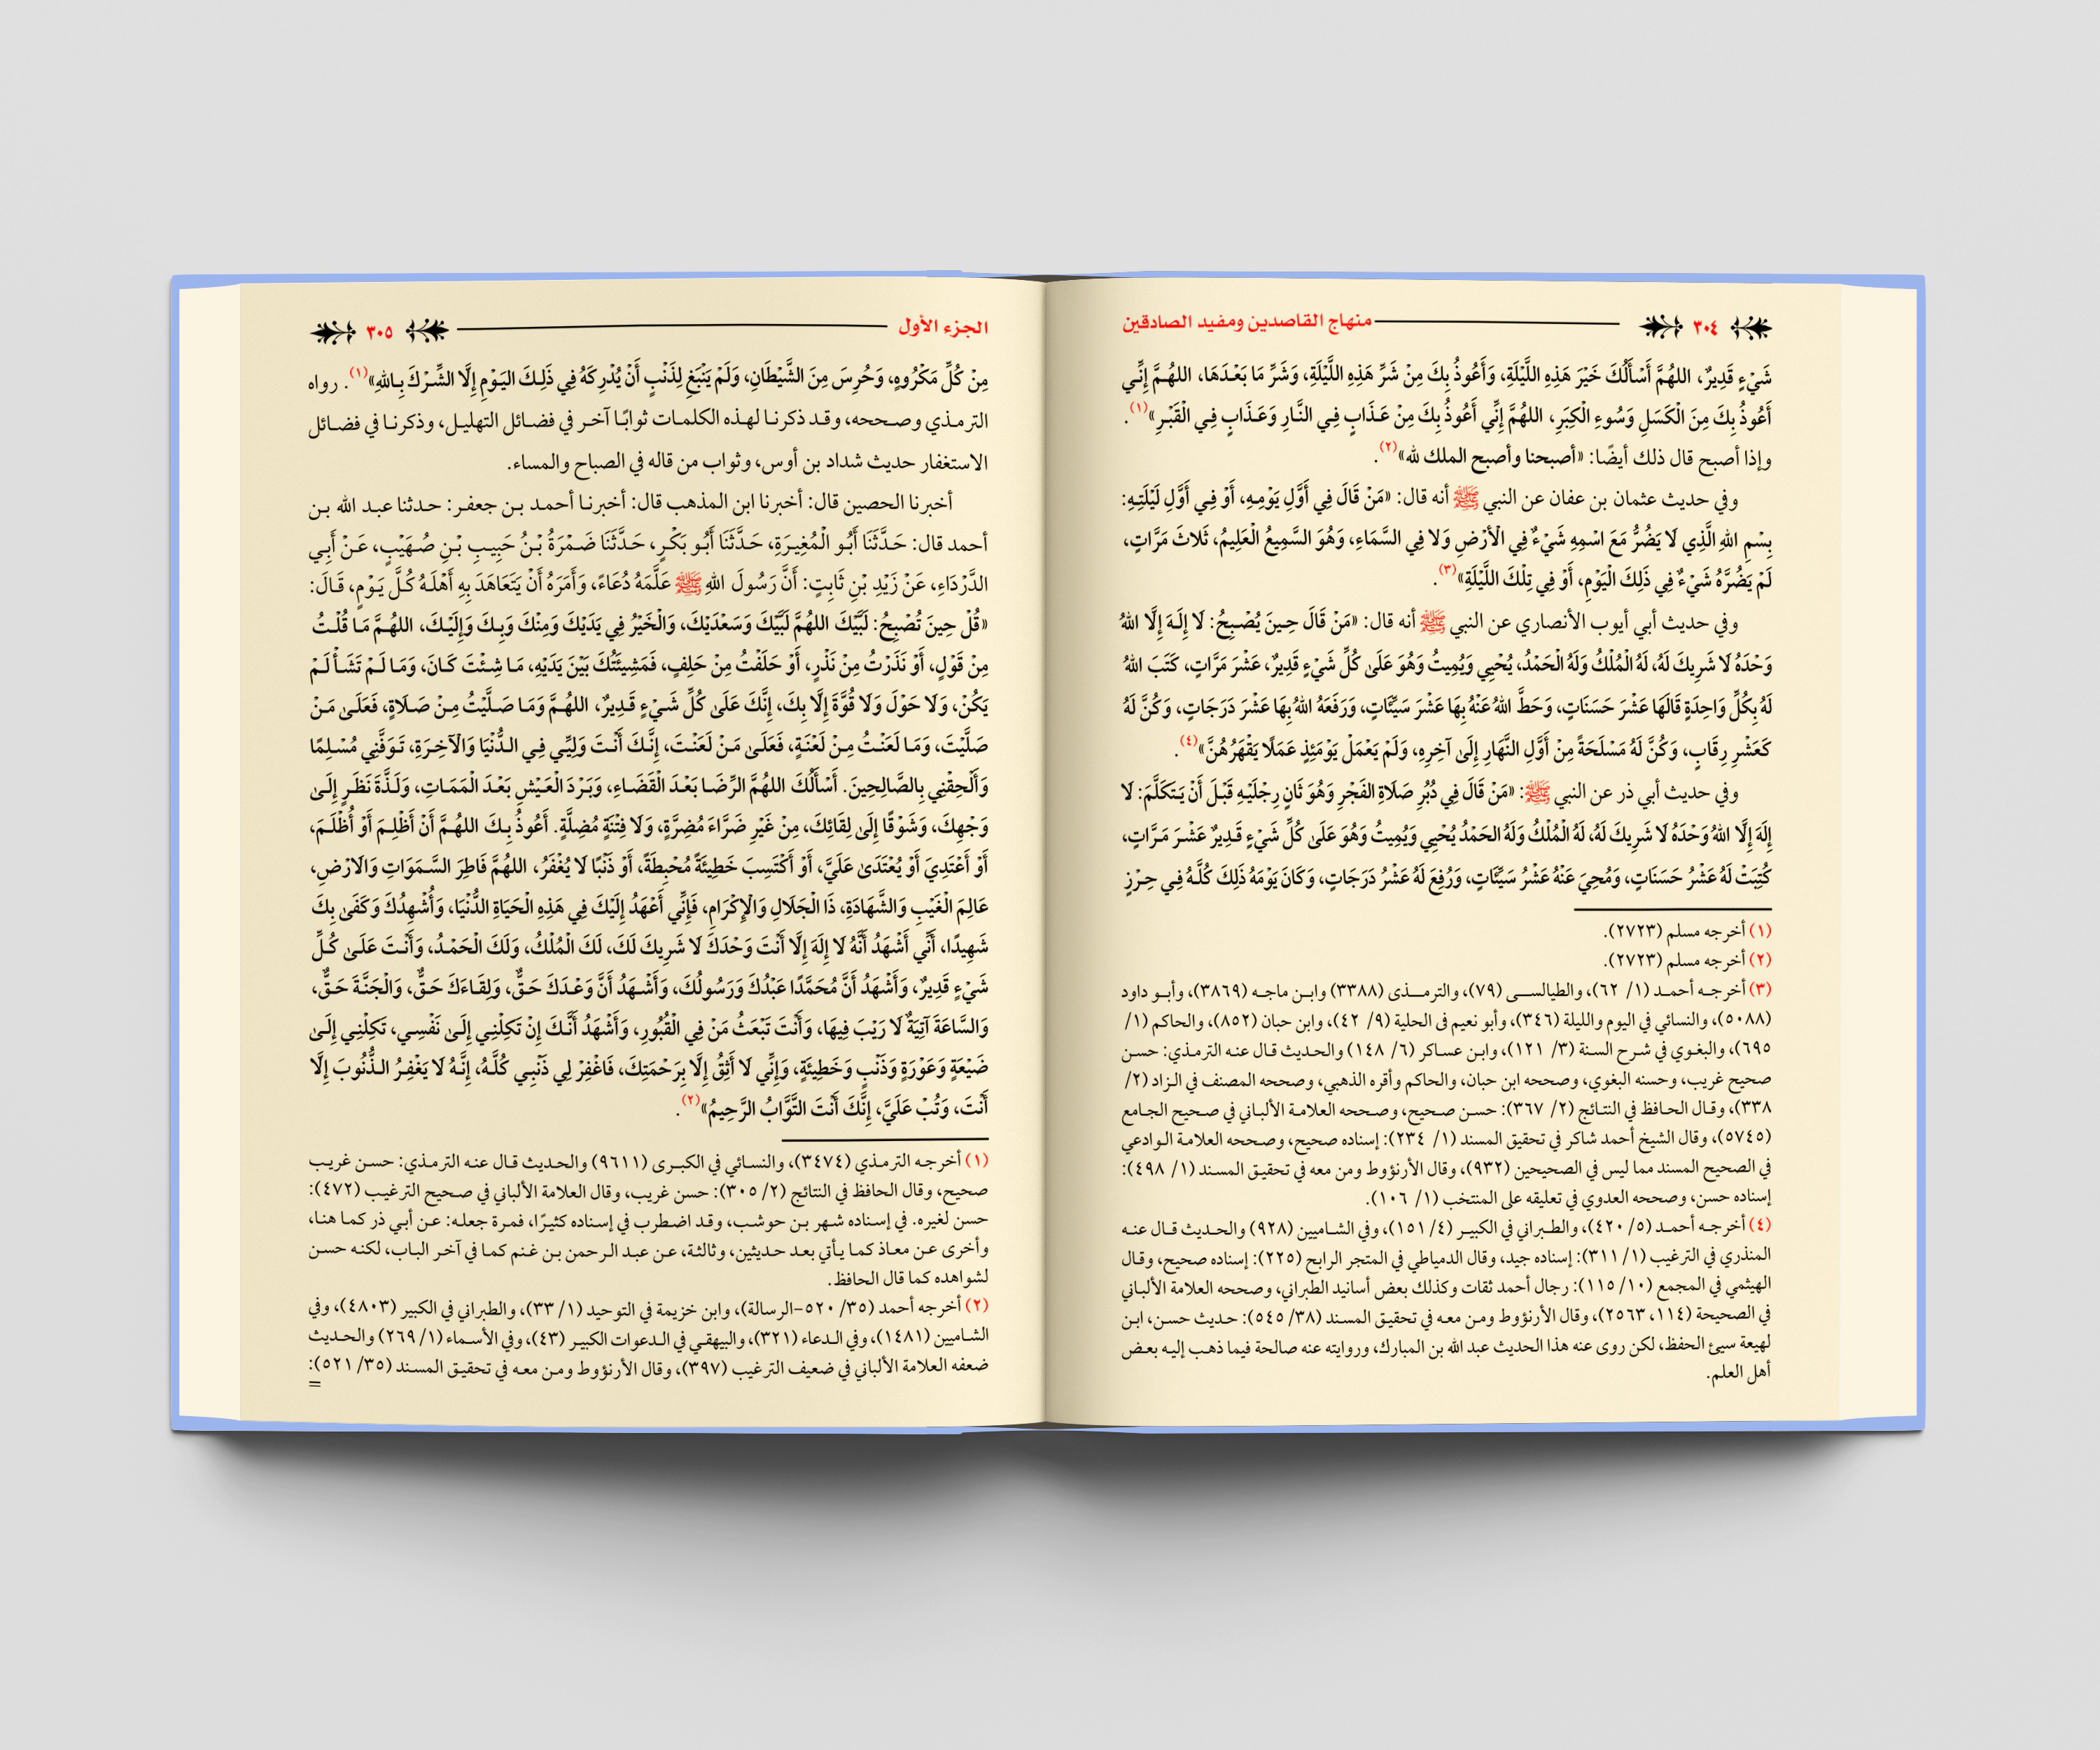 ٣٠٤ منهاج القاصدين ومفيد الصادقين
شَيْءٍ قَدِيرٌ، اللهُمَّ أَسْأَلُكَ خَيْرَ هَذِهِ اللَّيْلَةِ، وَأَعُوذُ بِكَ مِنْ شَرِّ هَذِهِ اللَّيْلَةِ، وَشَرِّ مَا بَعْدَهَا، اللهُمَّ إِنِّي
أَعُوذُ بِكَ مِنَ الْكَسَلِ وَسُوءِ الْكِبَرِ، اللهُمَّ إِنِّي أَعُوذُ بِكَ مِنْ عَذَابٍ فِي النَّارِ وَعَذَابٍ فِي الْقَبْرِ»(١).
وإذا أصبح قال ذلك أيضًا: «أصبحنا وأصبح الملك لله»(٢).
وفي حديث عثمان بن عفان عن النبي ﷺ أنه قال: «مَنْ قَالَ فِي أَوَّلِ يَوْمِهِ، أَوْ فِي أَوَّلِ لَيْلَتِهِ:
بِسْمِ اللهِ الَّذِي لَا يَضُرُّ مَعَ اسْمِهِ شَيْءٌ فِي الْأَرْضِ وَلا فِي السَّمَاءِ، وَهُوَ السَّمِيعُ الْعَلِيمُ، ثَلاثَ مَرَّاتٍ،
لَمْ يَضُرَّهُ شَيْءٌ فِي ذَلِكَ الْيَوْمِ، أَوْ فِي تِلْكَ اللَّيْلَةِ»(٣).
وفي حديث أبي أيوب الأنصاري عن النبي ﷺ أنه قال: «مَنْ قَالَ حِينَ يُصْبِحُ: لَا إِلَهَ إِلَّا اللهُ
وَحْدَهُ لَا شَرِيكَ لَهُ، لَهُ الْمُلْكُ وَلَهُ الْحَمْدُ، يُحْيِي وَيُمِيتُ وَهُوَ عَلَى كُلِّ شَيْءٍ قَدِيرٌ، عَشْرَ مَرَّاتٍ، كَتَبَ اللهُ
لَهُ بِكُلِّ وَاحِدَةٍ قَالَهَا عَشْرَ حَسَنَاتٍ، وَحَطَّ اللهُ عَنْهُ بِهَا عَشْرَ سَيِّئَاتٍ، وَرَفَعَهُ اللهُ بِهَا عَشْرَ دَرَجَاتٍ، وَكُنَّ لَهُ
كَعَشْرِ رِقَابٍ، وَكُنَّ لَهُ مَسْلَحَةً مِنْ أَوَّلِ النَّهَارِ إِلَى آخِرِهِ، وَلَمْ يَعْمَلْ يَوْمَئِذٍ عَمَلًا يَقْهَرُهُنَّ»(٤).
وفي حديث أبي ذر عن النبي ﷺ: «مَنْ قَالَ فِي دُبُرِ صَلَاةِ الفَجْرِ وَهُوَ ثَانٍ رِجْلَيْهِ قَبْلَ أَنْ يَتَكَلَّمَ: لَا
إِلَهَ إِلَّا اللهُ وَحْدَهُ لَا شَرِيكَ لَهُ، لَهُ الْمُلْكُ وَلَهُ الحَمْدُ يُحْيِي وَيُمِيتُ وَهُوَ عَلَى كُلِّ شَيْءٍ قَدِيرٌ عَشْرَ مَرَّاتٍ،
كُتِبَتْ لَهُ عَشْرُ حَسَنَاتٍ، وَمُحِيَ عَنْهُ عَشْرُ سَيِّئَاتٍ، وَرُفِعَ لَهُ عَشْرُ دَرَجَاتٍ، وَكَانَ يَوْمَهُ ذَلِكَ كُلَّهُ فِي حِرْزٍ
(١) أخرجه مسلم (٢٧٢٣).
(٢) أخرجه مسلم (٢٧٢٣).
(٣) أخرجه أحمد (١/ ٦٢)، والطيالسي (٧٩)، والترمذى (٣٣٨٨) وابن ماجه (٣٨٦٩)، وأبو داود
(٥٠٨٨)، والنسائي في اليوم والليلة (٣٤٦)، وأبو نعيم فى الحلية (٩/ ٤٢)، وابن حبان (٨٥٢)، والحاكم (١/
٦٩٥)، والبغوي في شرح السنة (٣/ ١٢١)، وابن عساكر (٦/ ١٤٨) والحديث قال عنه الترمذي: حسن
صحيح غريب، وحسنه البغوي، وصححه ابن حبان، والحاكم وأقره الذهبي، وصححه المصنف في الزاد (٢/
٣٣٨)، وقال الحافظ في النتائج (٢/ ٣٦٧): حسن صحيح، وصححه العلامة الألباني في صحيح الجامع
(٥٧٤٥)، وقال الشيخ أحمد شاكر في تحقيق المسند (١/ ٢٣٤): إسناده صحيح، وصححه العلامة الوادعي
في الصحيح المسند مما ليس في الصحيحين (٩٣٢)، وقال الأرنؤوط ومن معه في تحقيق المسند (١/ ٤٩٨):
إسناده حسن، وصححه العدوي في تعليقه على المنتخب (١/ ١٠٦).
(٤) أخرجه أحمد (٥/ ٤٢٠)، والطبراني في الكبير (٤/ ١٥١)، وفي الشاميين (٩٢٨) والحديث قال عنه
المنذري في الترغيب (١/ ٣١١): إسناده جيد، وقال الدمياطي في المتجر الرابح (٢٢٥): إسناده صحيح، وقال
الهيثمي في المجمع (١٠/ ١١٥): رجال أحمد ثقات وكذلك بعض أسانيد الطبراني، وصححه العلامة الألباني
في الصحيحة (١١٤، ٢٥٦٣)، وقال الأرنؤوط ومن معه في تحقيق المسند (٣٨/ ٥٤٥): حديث حسن، ابن
لهيعة سيئ الحفظ، لكن روى عنه هذا الحديث عبد الله بن المبارك، وروايته عنه صالحة فيما ذهب إليه بعض
أهل العلم.
الجزء الأول ٣٠٥
مِنْ كُلِّ مَكْرُوهٍ، وَحُرِسَ مِنَ الشَّيْطَانِ، وَلَمْ يَنْبَغِ لِذَنْبٍ أَنْ يُدْرِكَهُ فِي ذَلِكَ اليَوْمِ إِلَّا الشِّرْكَ بِاللهِ»(١). رواه
الترمذي وصححه، وقد ذكرنا لهذه الكلمات ثوابًا آخر في فضائل التهليل، وذكرنا في فضائل
الاستغفار حديث شداد بن أوس، وثواب من قاله في الصباح والمساء.
أخبرنا الحصين قال: أخبرنا ابن المذهب قال: أخبرنا أحمد بن جعفر: حدثنا عبد الله بن
أحمد قال: حَدَّثَنَا أَبُو الْمُغِيرَةِ، حَدَّثَنَا أَبُو بَكْرٍ، حَدَّثَنَا ضَمْرَةُ بْنُ حَبِيبِ بْنِ صُهَيْبٍ، عَنْ أَبِي
الدَّرْدَاءِ، عَنْ زَيْدِ بْنِ ثَابِتٍ: أَنَّ رَسُولَ اللهِ ﷺ عَلَّمَهُ دُعَاءً، وَأَمَرَهُ أَنْ يَتَعَاهَدَ بِهِ أَهْلَهُ كُلَّ يَوْمٍ، قَالَ:
«قُلْ حِينَ تُصْبِحُ: لَبَّيْكَ اللهُمَّ لَبَّيْكَ وَسَعْدَيْكَ، وَالْخَيْرُ فِي يَدَيْكَ وَمِنْكَ وَبِكَ وَإِلَيْكَ، اللهُمَّ مَا قُلْتُ
مِنْ قَوْلٍ، أَوْ نَذَرْتُ مِنْ نَذْرٍ، أَوْ حَلَفْتُ مِنْ حَلِفٍ، فَمَشِيئَتُكَ بَيْنَ يَدَيْهِ، مَا شِئْتَ كَانَ، وَمَا لَمْ تَشَأْ لَمْ
يَكُنْ، وَلَا حَوْلَ وَلَا قُوَّةَ إِلَّا بِكَ، إِنَّكَ عَلَى كُلِّ شَيْءٍ قَدِيرٌ، اللهُمَّ وَمَا صَلَّيْتُ مِنْ صَلَاةٍ، فَعَلَى مَنْ
صَلَّيْتَ، وَمَا لَعَنْتُ مِنْ لَعْنَةٍ، فَعَلَى مَنْ لَعَنْتَ، إِنَّكَ أَنْتَ وَلِيِّي فِي الدُّنْيَا وَالْآخِرَةِ، تَوَفَّنِي مُسْلِمًا
وَأَلْحِقْنِي بِالصَّالِحِينَ. أَسْأَلُكَ اللهُمَّ الرِّضَا بَعْدَ الْقَضَاءِ، وَبَرْدَ الْعَيْشِ بَعْدَ الْمَمَاتِ، وَلَذَّةَ نَظَرٍ إِلَى
وَجْهِكَ، وَشَوْقًا إِلَى لِقَائِكَ، مِنْ غَيْرِ ضَرَّاءَ مُضِرَّةٍ، وَلَا فِتْنَةٍ مُضِلَّةٍ. أَعُوذُ بِكَ اللهُمَّ أَنْ أَظْلِمَ أَوْ أُظْلَمَ،
أَوْ أَعْتَدِيَ أَوْ يُعْتَدَى عَلَيَّ، أَوْ أَكْتَسِبَ خَطِيئَةً مُحْبِطَةً، أَوْ ذَنْبًا لَا يُغْفَرُ، اللهُمَّ فَاطِرَ السَّمَوَاتِ وَالْأَرْضِ،
عَالِمَ الْغَيْبِ وَالشَّهَادَةِ، ذَا الْجَلَالِ وَالْإِكْرَامِ، فَإِنِّي أَعْهَدُ إِلَيْكَ فِي هَذِهِ الْحَيَاةِ الدُّنْيَا، وَأُشْهِدُكَ وَكَفَى بِكَ
شَهِيدًا، أَنِّي أَشْهَدُ أَنَّهُ لَا إِلَهَ إِلَّا أَنْتَ وَحْدَكَ لَا شَرِيكَ لَكَ، لَكَ الْمُلْكُ، وَلَكَ الْحَمْدُ، وَأَنْتَ عَلَى كُلِّ
شَيْءٍ قَدِيرٌ، وَأَشْهَدُ أَنَّ مُحَمَّدًا عَبْدُكَ وَرَسُولُكَ، وَأَشْهَدُ أَنَّ وَعْدَكَ حَقٌّ، وَلِقَاءَكَ حَقٌّ، وَالْجَنَّةَ حَقٌّ،
وَالسَّاعَةَ آتِيَةٌ لَا رَيْبَ فِيهَا، وَأَنْتَ تَبْعَثُ مَنْ فِي الْقُبُورِ، وَأَشْهَدُ أَنَّكَ إِنْ تَكِلْنِي إِلَى نَفْسِي، تَكِلْنِي إِلَى
ضَيْعَةٍ وَعَوْرَةٍ وَذَنْبٍ وَخَطِيئَةٍ، وَإِنِّي لَا أَثِقُ إِلَّا بِرَحْمَتِكَ، فَاغْفِرْ لِي ذَنْبِي كُلَّهُ، إِنَّهُ لَا يَغْفِرُ الذُّنُوبَ إِلَّا
أَنْتَ، وَتُبْ عَلَيَّ، إِنَّكَ أَنْتَ التَّوَّابُ الرَّحِيمُ»(٢).
(١) أخرجه الترمذي (٣٤٧٤)، والنسائي في الكبرى (٩٦١١) والحديث قال عنه الترمذي: حسن غريب
صحيح، وقال الحافظ في النتائج (٢/ ٣٠٥): حسن غريب، وقال العلامة الألباني في صحيح الترغيب (٤٧٢):
حسن لغيره. في إسناده شهر بن حوشب، وقد اضطرب في إسناده كثيرًا، فمرة جعله: عن أبي ذر كما هنا،
وأخرى عن معاذ كما يأتي بعد حديثين، وثالثة، عن عبد الرحمن بن غنم كما في آخر الباب، لكنه حسن
لشواهده كما قال الحافظ.
(٢) أخرجه أحمد (٣٥/ ٥٢٠-الرسالة)، وابن خزيمة في التوحيد (١/ ٣٣)، والطبراني في الكبير (٤٨٠٣)، وفي
الشاميين (١٤٨١)، وفي الدعاء (٣٢١)، والبيهقي في الدعوات الكبير (٤٣)، وفي الأسماء (١/ ٢٦٩) والحديث
ضعفه العلامة الألباني في ضعيف الترغيب (٣٩٧)، وقال الأرنؤوط ومن معه في تحقيق المسند (٣٥/ ٥٢١):
=